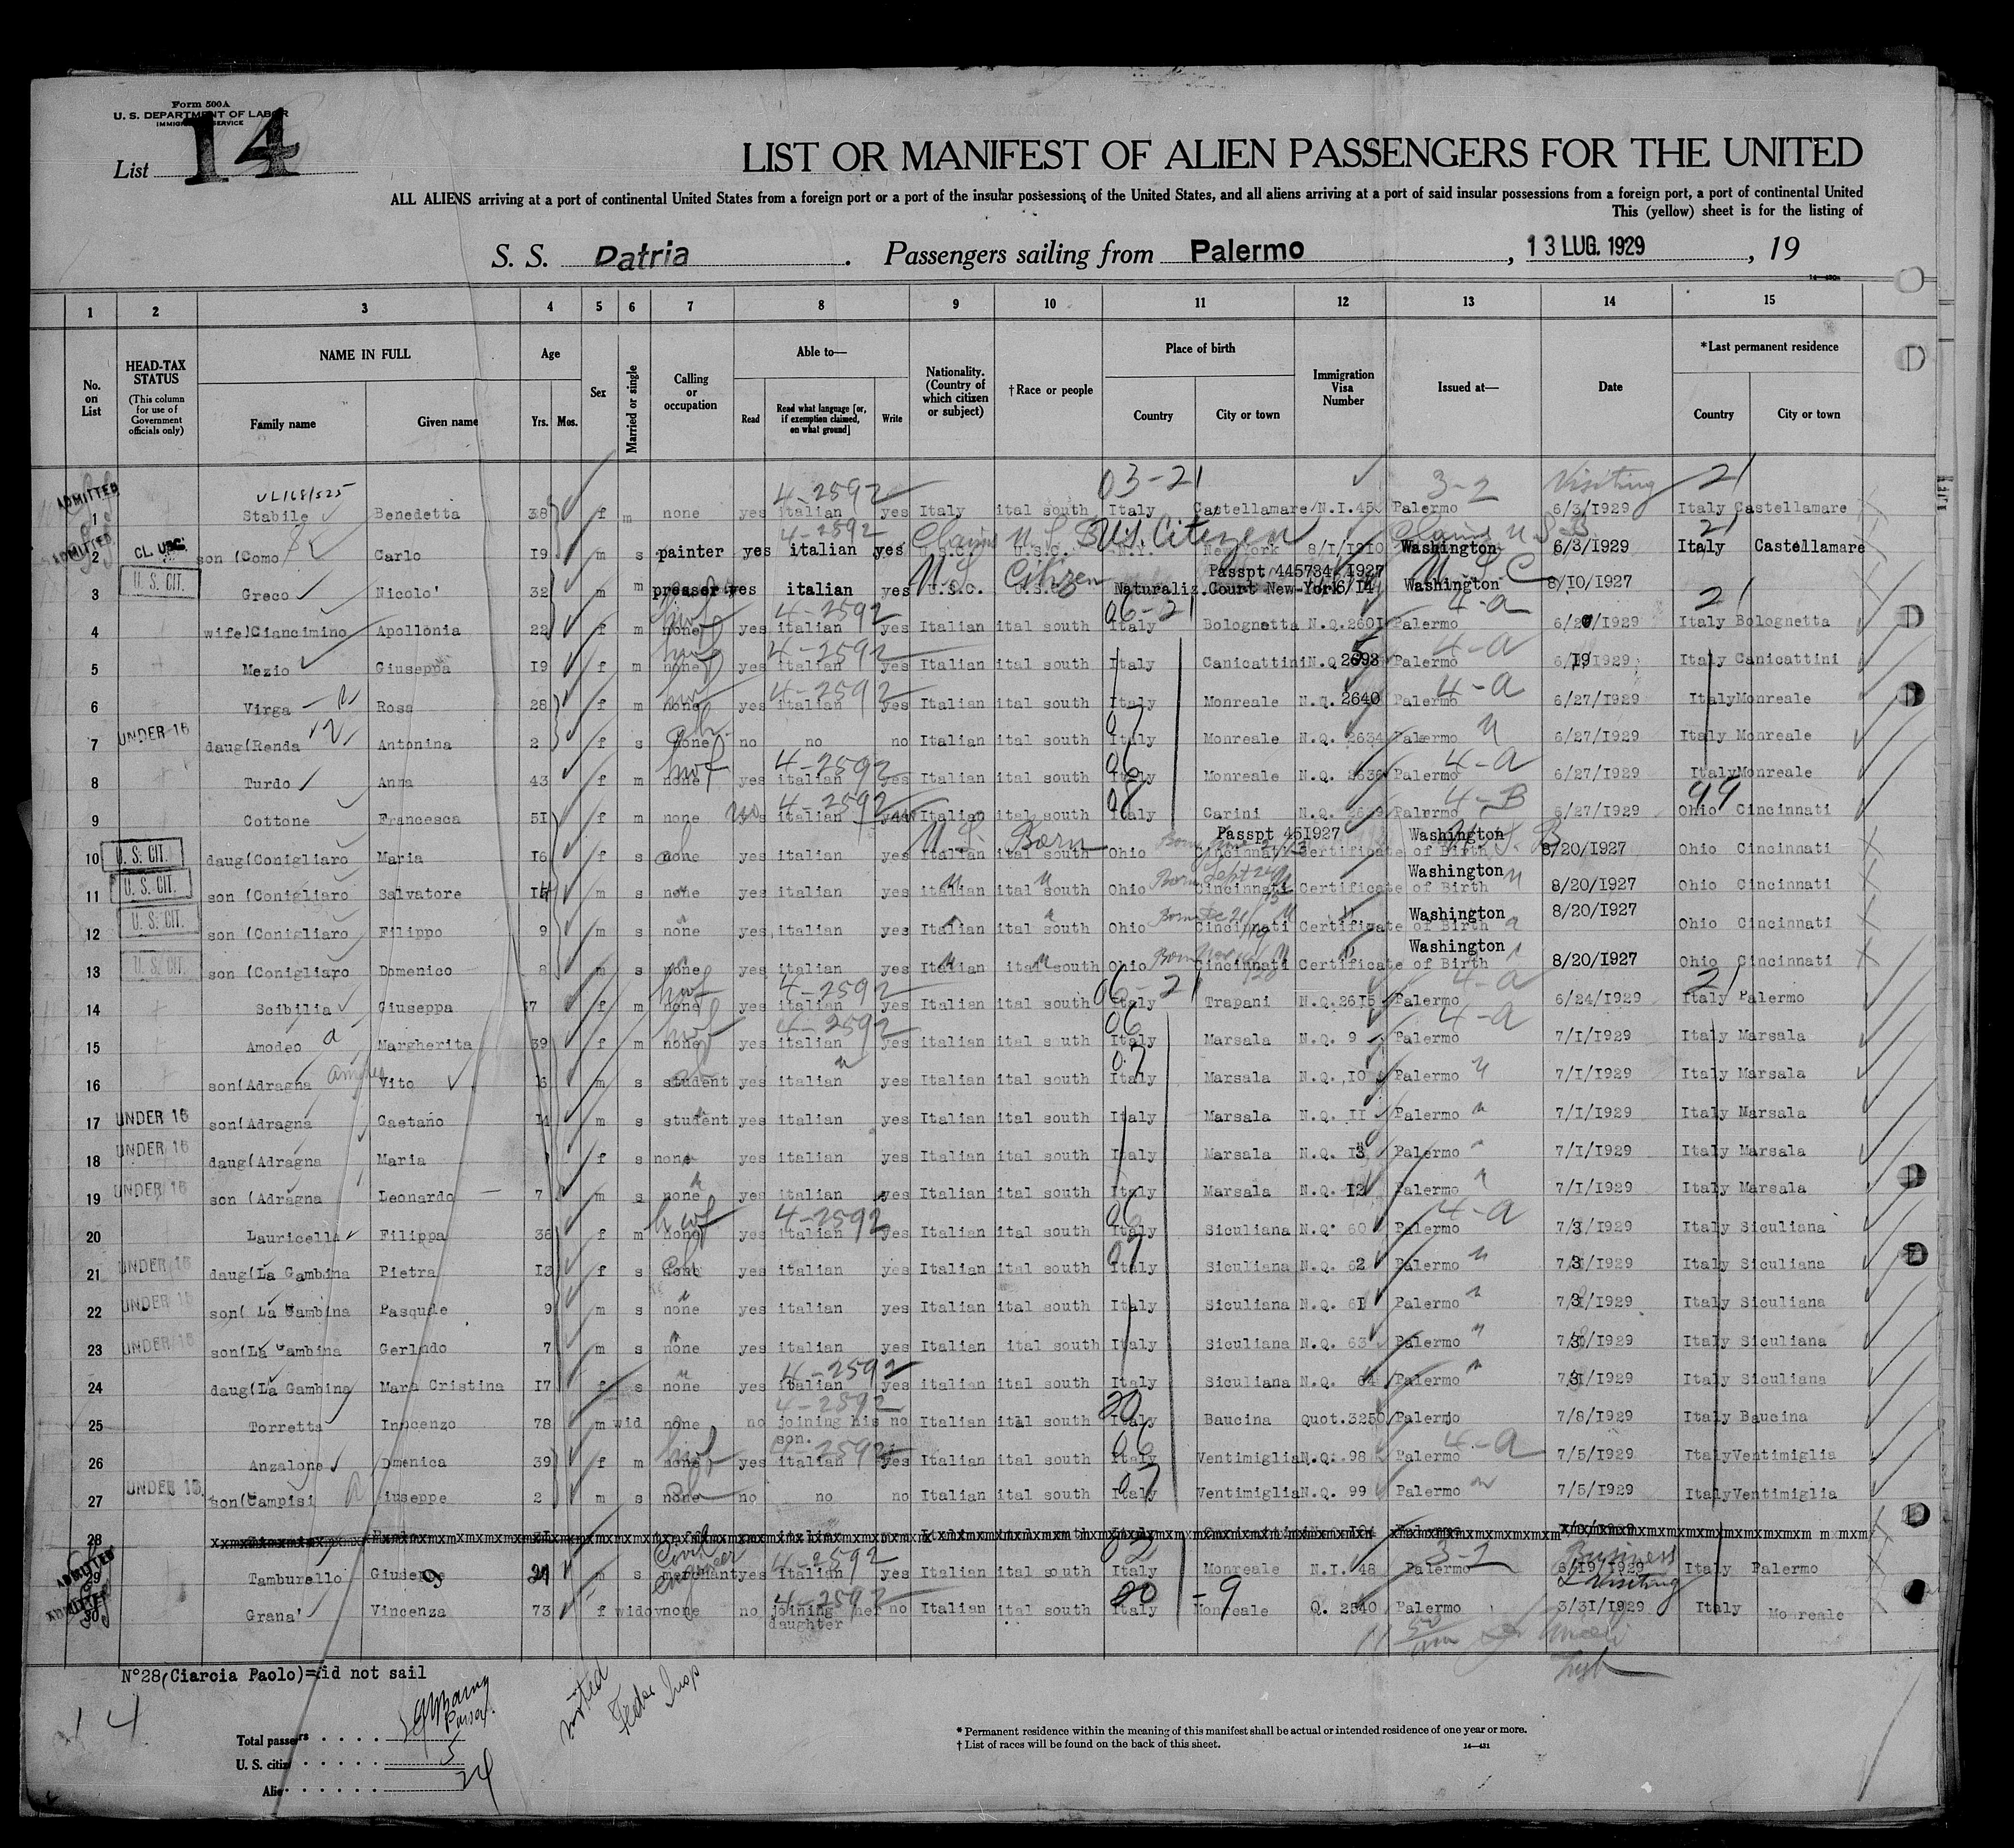 Form 500A
U. S. DEPARTMENT OF LABOR
IMMIGRATION SERVICE
List 14
LIST OR MANIFEST OF ALIEN PASSENGERS FOR THE UNITED
ALL ALIENS arriving at a port of continental United States from a foreign port or a port of the insular possessions of the United States, and all aliens arriving at a port of said insular possessions from a foreign port, a port of continental United
This (yellow) sheet is for the listing of
S. S. Patria . Passengers sailing from Palermo , 13 LUG. 1929 , 19
1 2 3 4 5 6 7 8 9 10 11 12 13 14 15
No. on List
HEAD-TAX STATUS (This column for use of Government officials only)
NAME IN FULL Family name Given name
Age Yrs. Mos.
Sex
Married or single
Calling or occupation
Able to— Read Read what language [or, if exemption claimed, on what ground] Write
Nationality. (Country of which citizen or subject)
†Race or people
Place of birth Country City or town
Immigration Visa Number
Issued at—
Date
*Last permanent residence Country City or town
03-21 3-2 Visiting 21
ADMITTED 4-2592
1 Stabile Benedetta 38 f m none yes italian yes Italy ital south Italy Castellamare N.I.45 Palermo 6/3/1929 Italy Castellamare
ADMITTED 4-2592 Claims U.S.B. U.S. Citizen Claims U.S.B. 21
2 son (Como Carlo 19 m s painter yes italian yes U.S.C. U.S.C. N.Y. New York 8/1/1910 Washington 6/3/1929 Italy Castellamare
U. S. CIT. U.S. Citizen Passpt 445734 1927 U S C
3 Greco Nicolo' 32 m m presser yes italian yes U.S.C. U.S.C. Naturaliz.Court New-York Washington 8/10/1927
hwf 4-2592 06-21 4-a 21
4 wife)Ciancimino Apollonia 22 f m none yes italian yes Italian ital south Italy Bolognetta N.Q.2601 Palermo 6/20/1929 Italy Bolognetta
hwf 4-2592 4-a
5 Mezio Giuseppa 19 f m none yes italian yes Italian ital south Italy Canicattini N.Q. Palermo 6/19/1929 Italy Canicattini
hwf 4-2592 4-a
6 Virga Rosa 28 f m none yes italian yes Italian ital south Italy Monreale N.Q. 2640 Palermo 6/27/1929 Italy Monreale
UNDER 16 ch 07
7 daug(Renda Antonina 2 f s none no no no Italian ital south Italy Monreale N.Q. 2634 Palermo 6/27/1929 Italy Monreale
hwf 4-2592 06 4-a
8 Turdo Anna 43 f m none yes italian yes Italian ital south Italy Monreale N.Q. 2636 Palermo 6/27/1929 Italy Monreale
no 4-2592 4-B 99
9 Cottone Francesca 51 f m none yes italian yes Italian ital south Italy Carini N.Q. Palermo 6/27/1929 Ohio Cincinnati
U. S. CIT. U.S. Born Passpt 451927 Washington U.S.B
10 daug(Conigliaro Maria 16 f s none yes italian yes Italian ital south Ohio Cincinnati Certificate of Birth 8/20/1927 Ohio Cincinnati
U. S. CIT. Born Sept Washington
11 son (Conigliaro Salvatore 14 m s none yes italian yes italian ital south Ohio Cincinnati Certificate of Birth 8/20/1927 Ohio Cincinnati
U. S. CIT. Born Washington
12 son (Conigliaro Filippo 9 m s none yes italian yes Italian ital south Ohio Cincinnati Certificate of Birth 8/20/1927 Ohio Cincinnati
U. S. CIT. Born Nov Washington
13 son (Conigliaro Domenico 8 m s none yes italian yes Italian ital south Ohio Cincinnati Certificate of Birth 8/20/1927 Ohio Cincinnati
hwf 4-2592 06-21 4-a 21
14 Scibilia Giuseppa f m none yes italian yes Italian ital south Italy Trapani N.Q.2615 Palermo 6/24/1929 Italy Palermo
hwf 4-2592 06 4-a
15 Amodeo Margherita 39 f m none yes italian yes italian ital s uth Italy Marsala N.Q. 9 Palermo 7/1/1929 Italy Marsala
07
16 son(Adragna Vito 16 m s student yes italian yes Italian ital south Italy Marsala N.Q. 10 Palermo 7/1/1929 Italy Marsala
17 UNDER 16 son(Adragna Gaetano 14 m s student yes italian yes Italian ital south Italy Marsala N.Q. 11 Palermo 7/1/1929 Italy Marsala
18 UNDER 16 daug(Adragna Maria f s none yes italian yes Italian ital south Italy Marsala N.Q. 13 Palermo 7/1/1929 Italy Marsala
19 UNDER 16 son (Adragna Leonardo 7 m s none yes italian yes Italian ital south Italy Marsala N.Q. 12 Palermo 7/1/1929 Italy Marsala
hwf 4-2592 06 4-a
20 Lauricella Filippa 36 f m none yes italian yes Italian ital south Italy Siculiana N.Q. 60 Palermo 7/3/1929 Italy Siculiana
07
21 UNDER 16 daug(La Gambina Pietra 13 f s none yes italian yes Italian ital south Italy Siculiana N.Q. 62 Palermo 7/3/1929 Italy Siculiana
22 UNDER 16 son( La Gambina Pasquale 9 m s none yes italian yes Italian ital south Italy Siculiana N.Q. 61 Palermo 7/3/1929 Italy Siculiana
23 UNDER 16 son(La Gambina Gerlndo 7 m s none yes italian yes Italian ital south Italy Siculiana N.Q. 63 Palermo 7/3/1929 Italy Siculiana
4-2592
24 daug(La Gambina Mara Cristina 17 f s none yes italian yes italian ital south Italy Siculiana N.Q. 64 Palermo 7/3/1929 Italy Siculiana
4-2592 20
25 Torretta Innocenzo 78 m wid none no joining his son. no Italian ital south Italy Baucina Quot.3250 Palermo 7/8/1929 Italy Baucina
hwf 4-2592 06 4-a
26 Anzalone Dmenica 39 f m none yes italian yes Italian ital south Italy Ventimiglia N.Q. 98 Palermo 7/5/1929 Italy Ventimiglia
UNDER 16 ch 07
27 son(Campisi Giuseppe 2 m s none no no no Italian ital south Italy Ventimiglia N.Q. 99 Palermo 7/5/1929 Italy Ventimiglia
28
ADMITTED Civil engineer 4-2592 02 3-2 Business & visiting
29 Tamburello Giuseppe m s merchant yes italian yes Italian ital south Italy Monreale N.I. 48 Palermo 6/19/1929 Italy Palermo
ADMITTED 4-2592 20 - 9
30 Grana' Vincenza 73 f widow none no joining her daughter no Italian ital south Italy Monreale Q. 2540 Palermo 3/31/1929 Italy Monreale
N°28(Ciarcia Paolo)=did not sail
14
noted
Total passers
U. S. citiz 5
Alie 24
* Permanent residence within the meaning of this manifest shall be actual or intended residence of one year or more.
† List of races will be found on the back of this sheet.
14—431